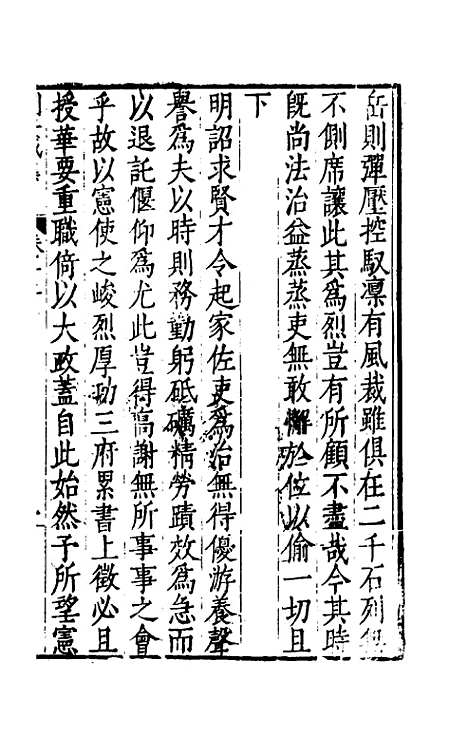 岳則彈壓控馭凜有風裁雖俱在二千石列無
不側席讓此其爲烈豈有所顧不盡哉今其時
旣尚法治益蒸蒸吏無敢懈於位以偷一切且
下
明詔求賢才令起家佐吏爲治無得優游養聲
譽爲夫以時則務勤躬砥礪精勞蹟效爲急而
以退託偃仰爲尤此豈得高謝無所事事之會
乎故以憲使之峻烈厚功三府累書上徵必且
授華要重職倚以大政蓋自此始然予所望憲